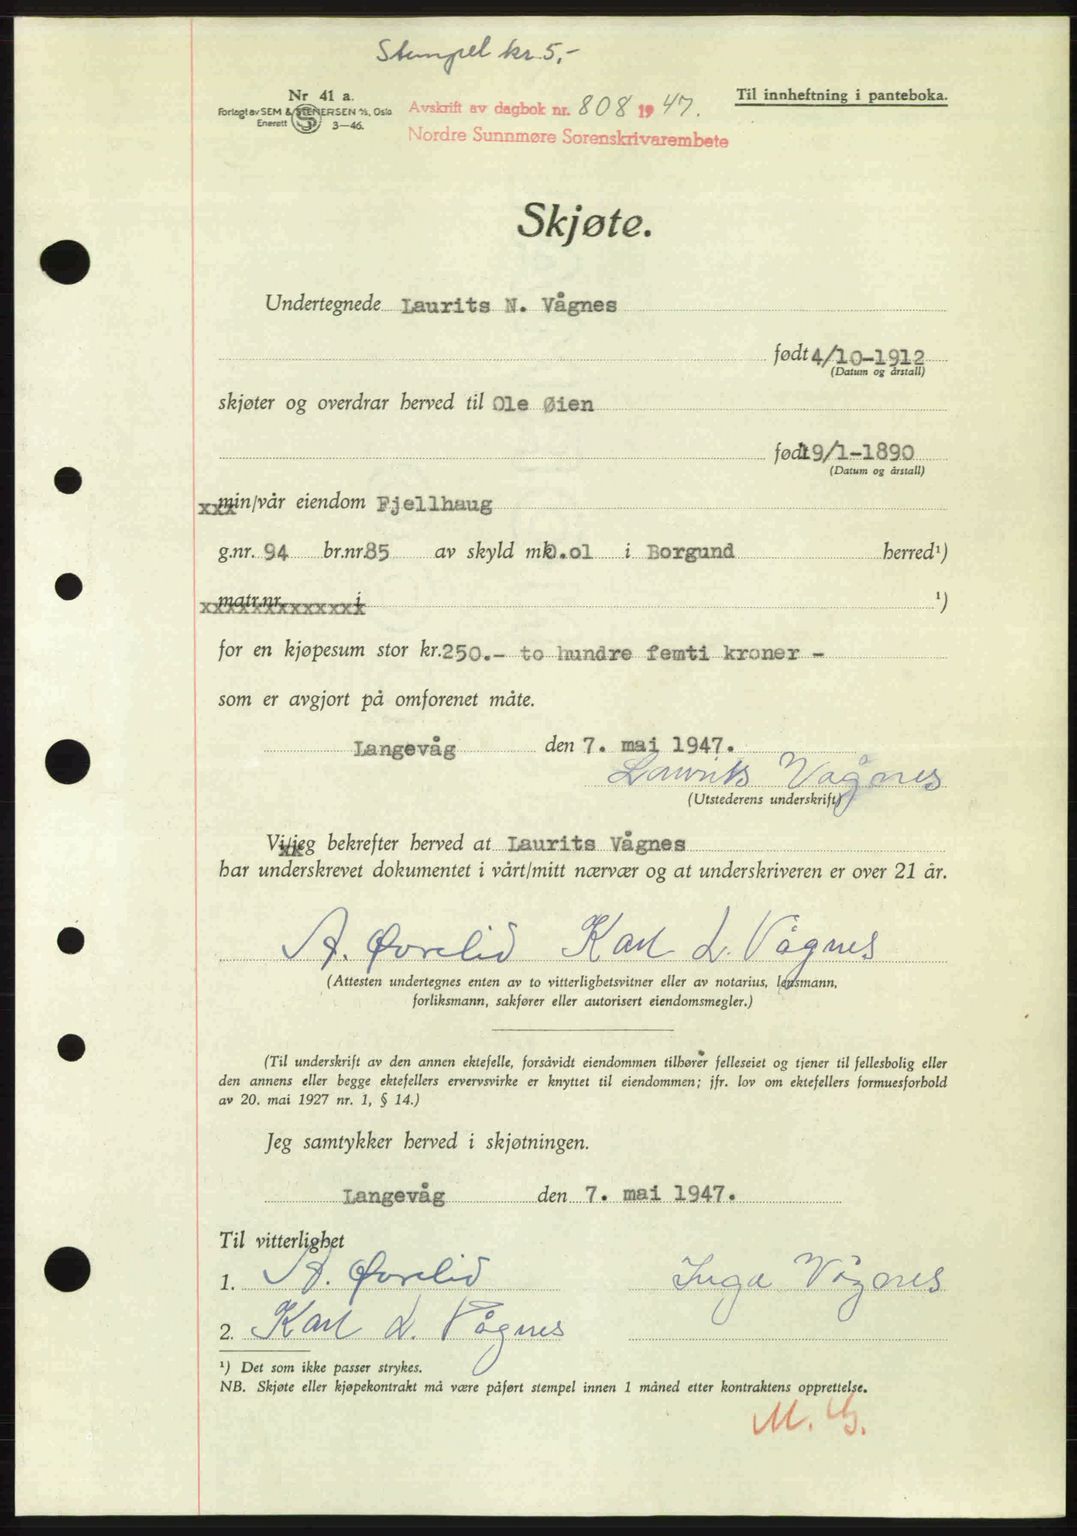 Stempel kr. 5,-
Nr 41 a.
Forlagt av SEM & STENERSEN A/S, Oslo
Enerett S 3—46.
Avskrift av dagbok nr. 808 1947.
Nordre Sunnmøre Sorenskrivarembete
Til innheftning i panteboka.
Skjøte.
Undertegnede Laurits N. Vågnes
født 4/10-1912
(Datum og årstall)
skjøter og overdrar herved til Ole Øien
født 19/1-1890
(Datum og årstall)
xxx min/vår eiendom Fjellhaug
g.nr. 94 br.nr. 85 av skyld mk 0.01 i Borgund herred¹)
matr.nr. i ¹)
for en kjøpesum stor kr. 250.- to hundre femti kroner -
som er avgjort på omforenet måte.
Langevåg den 7. mai 1947.
Laurits Vågnes
(Utstederens underskrift)
Vi/jeg bekrefter herved at Laurits Vågnes
har underskrevet dokumentet i vårt/mitt nærvær og at underskriveren er over 21 år.
A. Øvrelid Karl L. Vågnes
(Attesten undertegnes enten av to vitterlighetsvitner eller av notarius, lensmann,
forliksmann, sakfører eller autorisert eiendomsmegler.)
(Til underskrift av den annen ektefelle, forsåvidt eiendommen tilhører felleseiet og tjener til fellesbolig eller
den annens eller begge ektefellers ervervsvirke er knyttet til eiendommen; jfr. lov om ektefellers formuesforhold
av 20. mai 1927 nr. 1, § 14.)
Jeg samtykker herved i skjøtningen.
Langevåg den 7. mai 1947.
Til vitterlighet
1. A. Øvrelid Inga Vågnes
2. Karl L. Vågnes
¹) Det som ikke passer strykes.
NB. Skjøte eller kjøpekontrakt må være påført stempel innen 1 måned etter kontraktens opprettelse.
M. G.